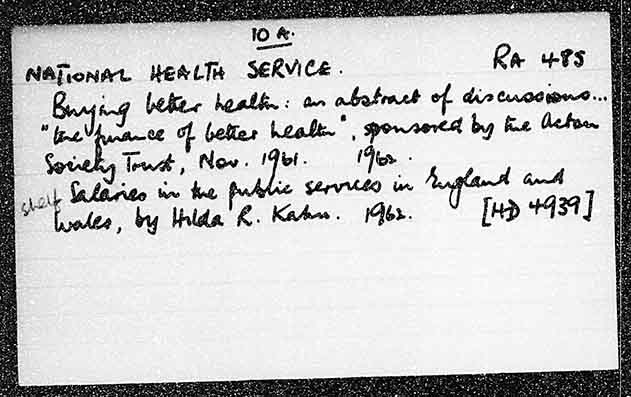 10 A.
NATIONAL HEALTH SERVICE. RA 485
Buying better health: an abstract of discussions...
"the finance of better health", sponsored by the Acton
Society Trust, Nov. 1961. 1962.
shelf Salaries in the public services in England and
Wales, by Hilda R. Kahn. 1962. [HD 4939]